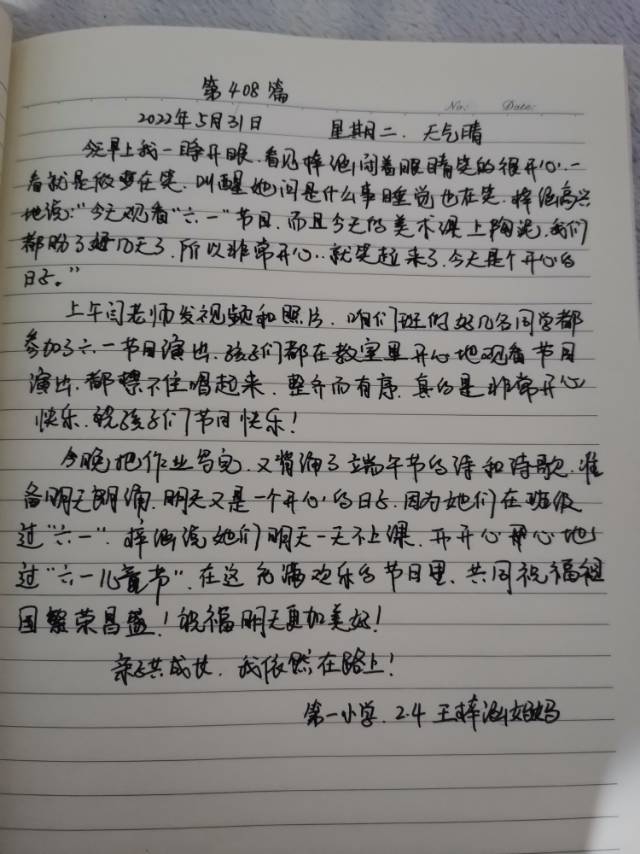 第408篇
No: Date:
2022年5月31日 星期二. 天气晴
今早上我一睁开眼.看见梓涵闭着眼睛笑的很开心.一
看就是做梦在笑.叫醒她问是什么事睡觉也在笑.梓涵高兴
地说:“今天观看“六一”节目.而且今天的美术课上陶泥.我们
都盼了好几天了.所以非常开心..就笑起来了.今天是个开心的
日子.”
上午闫老师发视频和照片.咱们班的好几名同学都
参加了六一节目演出.孩子们都在教室里开心地观看节目
演出.都禁不住唱起来.整齐而有序.真的是非常开心
快乐.祝孩子们节日快乐!
今晚把作业写完.又背诵了端午节的诗和诗歌.准
备明天朗诵.明天又是一个开心的日子.因为她们在班级
过“六一”.梓涵说她们明天一天不上课.开开心心地
过“六一儿童节”.在这充满欢乐的节日里.共同祝福祖
国繁荣昌盛!祝福明天更加美好!
亲子共成长.我依然在路上!
第一小学.2.4 王梓涵妈妈